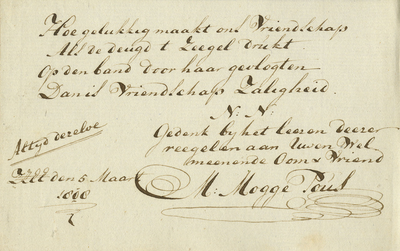 Hoe gelukkig maakt ons Vriendschap
Als de deugd t Zeegel drukt
Op den band door haar gevlogten
Dan is Vriendschap Zaligheid.
N: N:
Gedenk by het leesen deezer
reegelen aan Uwen Wel
meenende Oom & Vriend
M: Mogge Pous
Altyd dezelve
den 5 Maart